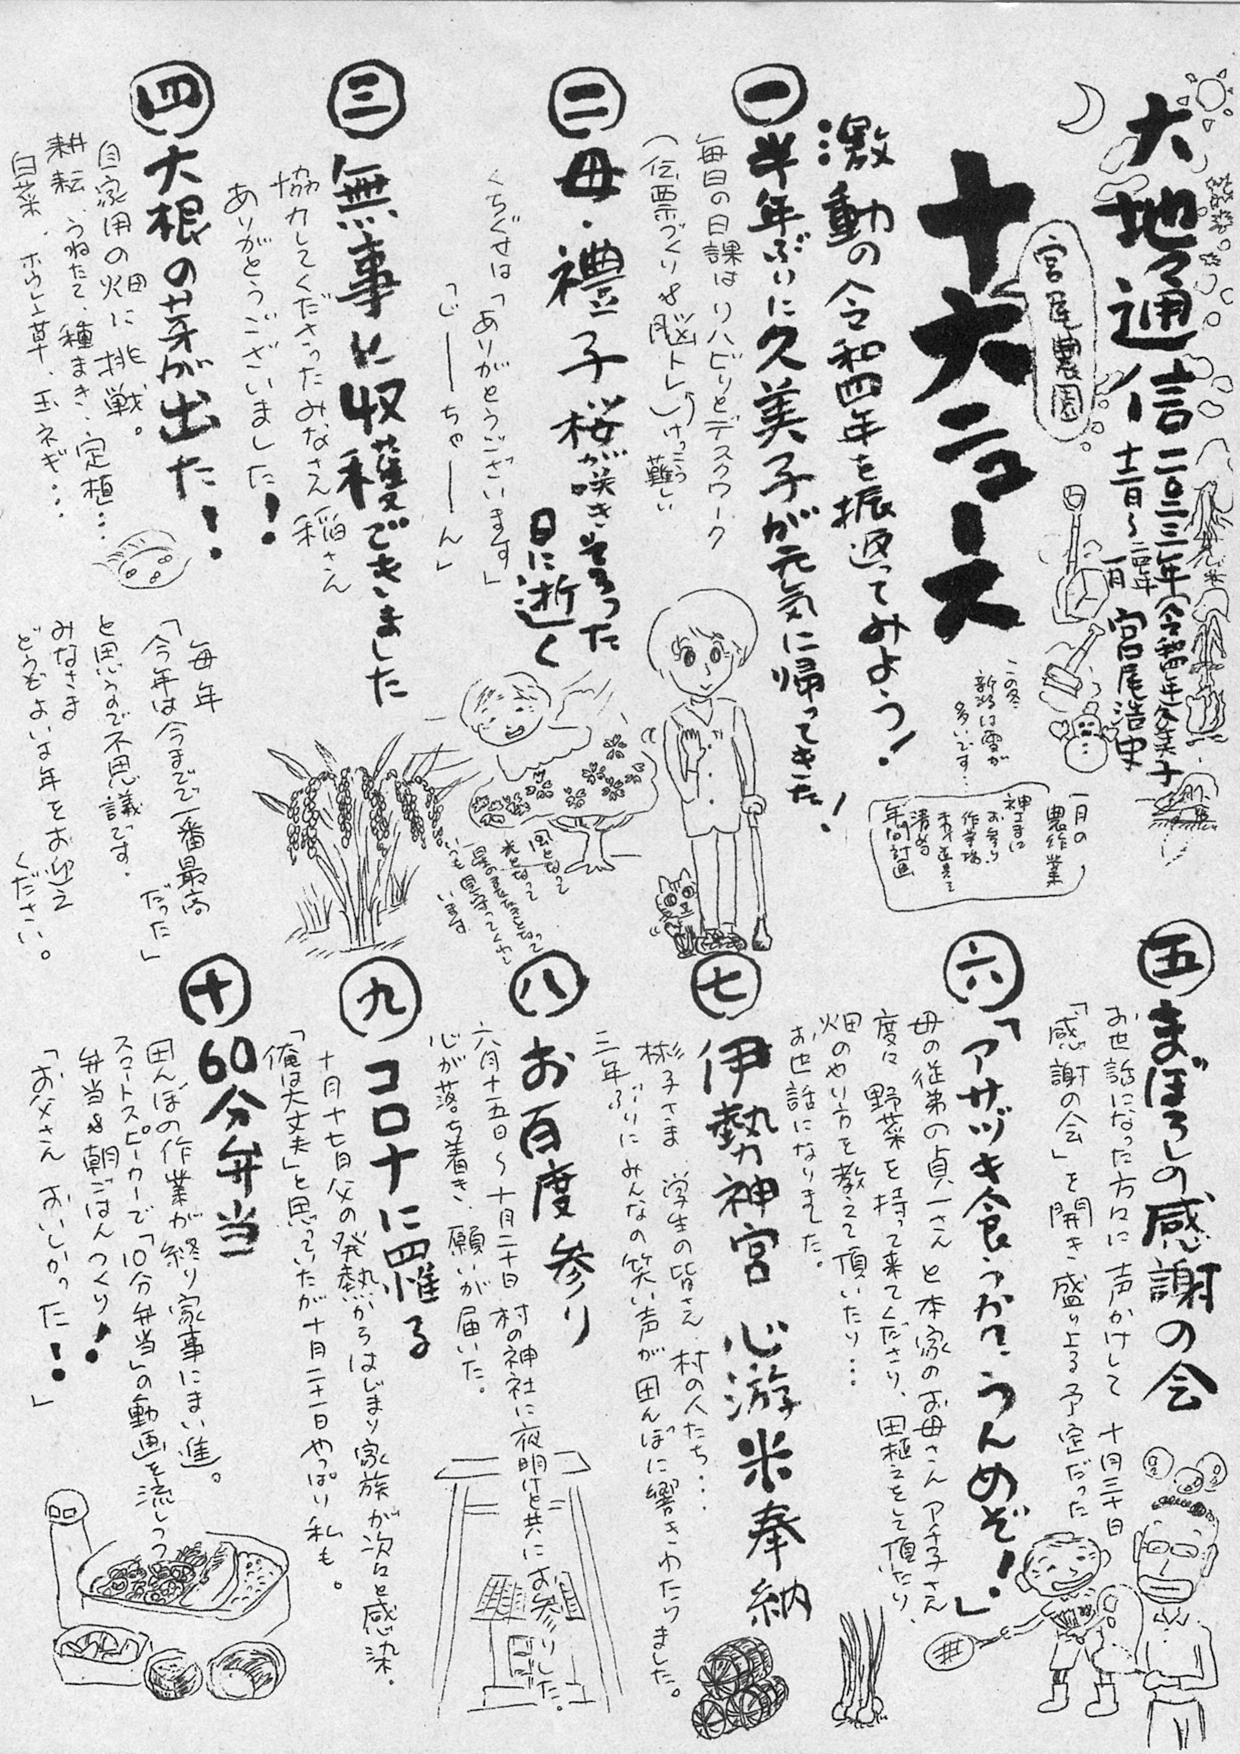 大地通信
二〇二二年(令和四年)
十二月〜二〇二三年一月
宮尾浩史
宮尾農園
十大ニュース
この冬
新潟は雪が
多いです…
一月の
農作業
神さまに
お参り
作業場
清める
年間計画
激動の令和四年を振返ってみよう!
一 半年ぶりに久美子が元気に帰ってきた!
毎日の日課はリハビリとデスクワーク
(伝票づくり&脳トレ)けっこう難しい
二 母・禮子 桜が咲きそろった
日に逝く
くちぐせは「ありがとうございます」
「じーーちゃーーん」
風となって
光となって
いつも見守ってくれて
います
三 無事に収穫できました
協力してくださったみなさん 稲さん
ありがとうございました!
四 大根の芽が出た!
自家用の畑に挑戦。
耕耘、うねたて、種まき、定植…
白菜、ホウレン草、玉ネギ…
毎年
「今年は今までで一番最高
だった」
と思うので不思議です。
みなさま
どうぞよいお年をお迎え
ください。
五 まぼろしの感謝の会
お世話になった方々に声かけして 十月三十日
「感謝の会」を開き 盛り上る予定だった
六 「アサヅキ食うかね、うんめぞ!」
母の従弟の貞一さんと本家のお母さんアチ子さん
度々 野菜を持って来てくださり、田植えをして頂いたり、
畑のやり方を教えて頂いたり…
お世話になりました。
七 伊勢神宮 心游米奉納
彬子さま 学生の皆さん 村の人たち…
三年ぶりにみんなの笑い声が田んぼに響きわたりました。
八 お百度参り
六月十五日〜十月二十日 村の神社に夜明けと共にお参りした。
心が落ち着き、願いが届いた。
九 コロナに罹る
十月十七日父の発熱からはじまり家族が次々と感染。
「俺は大丈夫」と思っていたが十月二十一日やっぱり私も。
十 60分弁当
田んぼの作業が終り家事にまい進。
スマートスピーカーで「10分弁当」の動画を流しつつ
弁当&朝ごはんつくり!
「お父さん おいしかった!」